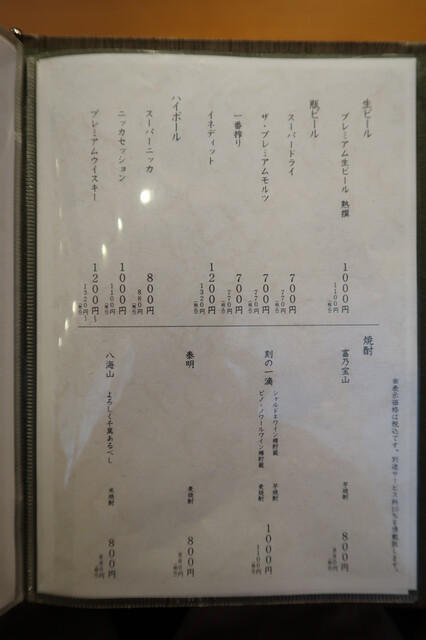 生ビール
プレミアム生ビール 熟撰 1000円
1100円(税込)
瓶ビール
スーパードライ 700円
770円(税込)
ザ・プレミアムモルツ 700円
770円(税込)
一番搾り 700円
770円(税込)
イネディット 1200円
1320円(税込)
ハイボール
スーパーニッカ 800円
880円(税込)
ニッカセッション 1000円
1100円(税込)
プレミアムウイスキー 1200円~
1320円~(税込)
※表示価格は税込です。別途サービス料10%を頂戴致します。
焼酎
富乃宝山 芋焼酎 800円
880円(税込)
刻の一滴 シャルドネワイン樽貯蔵 芋焼酎 1000円
ピノ・ノワールワイン樽貯蔵 麦焼酎 1100円(税込)
泰明 麦焼酎 800円
880円(税込)
八海山 よろしく千萬あるべし 米焼酎 800円
880円(税込)